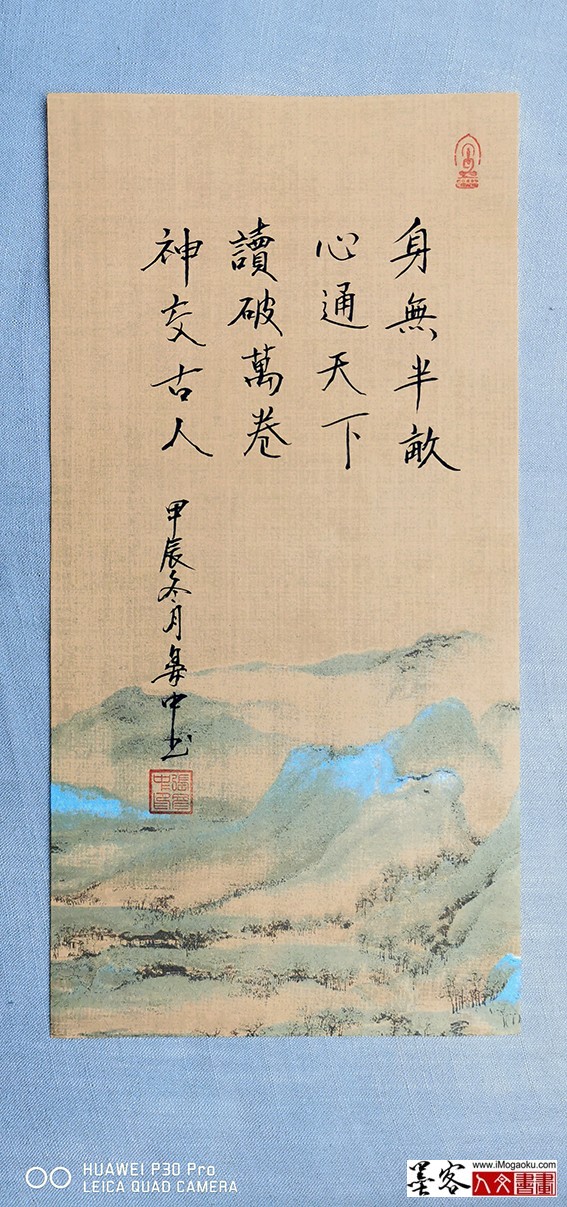 身無半畝
心通天下
讀破萬卷
神交古人
甲辰冬月華中书
HUAWEI P30 Pro
LEICA QUAD CAMERA
墨客
www.iMogaoku.com
人文書畫